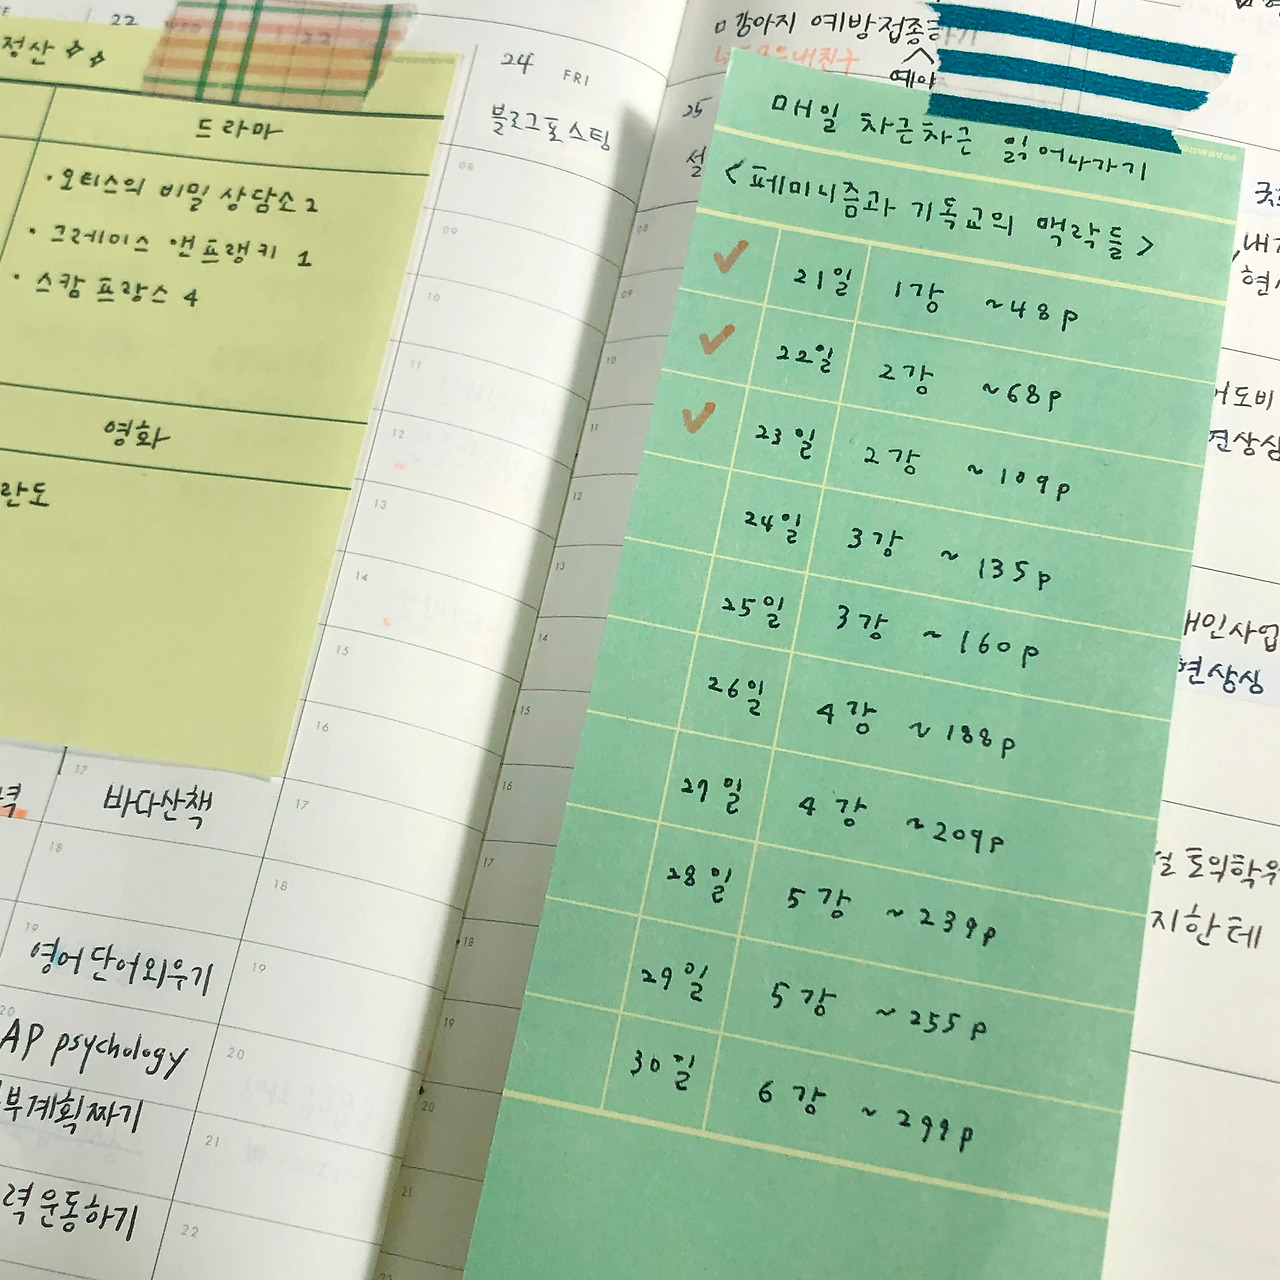 22
정산
드라마
· 오티스의 비밀 상담소 2
· 그레이스 앤 프랭키 1
· 스캄 프랑스 4
영화
란도
17
바다산책
18
19
영어단어외우기
20
AP psychology
부계획짜기
력운동하기
24 FRI
블로그포스팅
08
09
10
11
12
13
14
15
16
17
18
19
20
21
22
ㅁ강아지 예방접종하기
예약
25
설
08
09
10
11
12
13
14
15
16
17
18
19
20
21
매일 차근차근 읽어나가기
<페미니즘과 기독교의 맥락들>
✓ 21일 1강 ~48p
✓ 22일 2강 ~68p
✓ 23일 2강 ~109p
24일 3강 ~135p
25일 3강 ~160p
26일 4강 ~188p
27일 4강 ~209p
28일 5강 ~239p
29일 5강 ~255p
30일 6강 ~299p
어도비
견상싱
인사업
현상싱
토의학
지한테